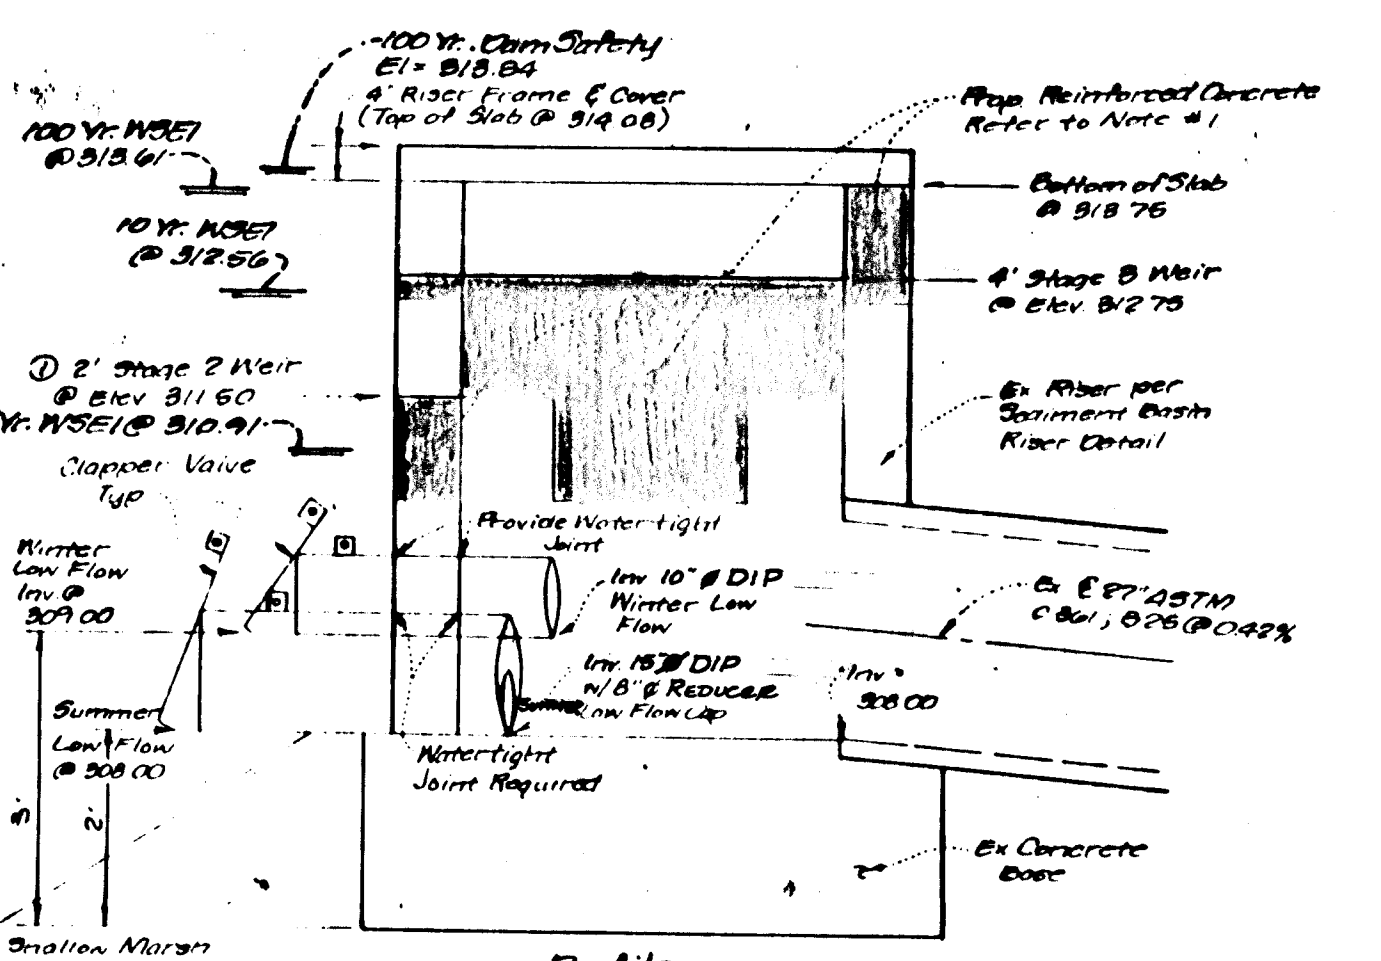 100 Yr. Dam Safety
El = 313.84
4' Riser Frame & Cover
(Top of Slab @ 314.08)
100 Yr. WSEl
@ 313.61
10 Yr. WSEl
@ 312.56
① 2' Stage 2 Weir
@ Elev 311.50
Yr. WSEl @ 310.91
Clapper Valve
Typ
Winter
Low Flow
Inv @
309.00
Summer
Low Flow
@ 308.00
3'
2'
Shallow Marsh
Prop. Reinforced Concrete
Refer to Note #1
Bottom of Slab
@ 313.75
4' Stage 3 Weir
@ Elev. 312.75
Ex Riser per
Sediment Basin
Riser Detail
Provide Watertight
Joint
Inv 10" Ø DIP
Winter Low
Flow
Inv. 15" Ø DIP
w/ 8" Ø REDUCER
Low Flow Cap
Watertight
Joint Required
Inv =
308.00
Ex ℄ 27" ASTM
C361, B25 @ 0.42%
Ex Concrete
Base
Profile